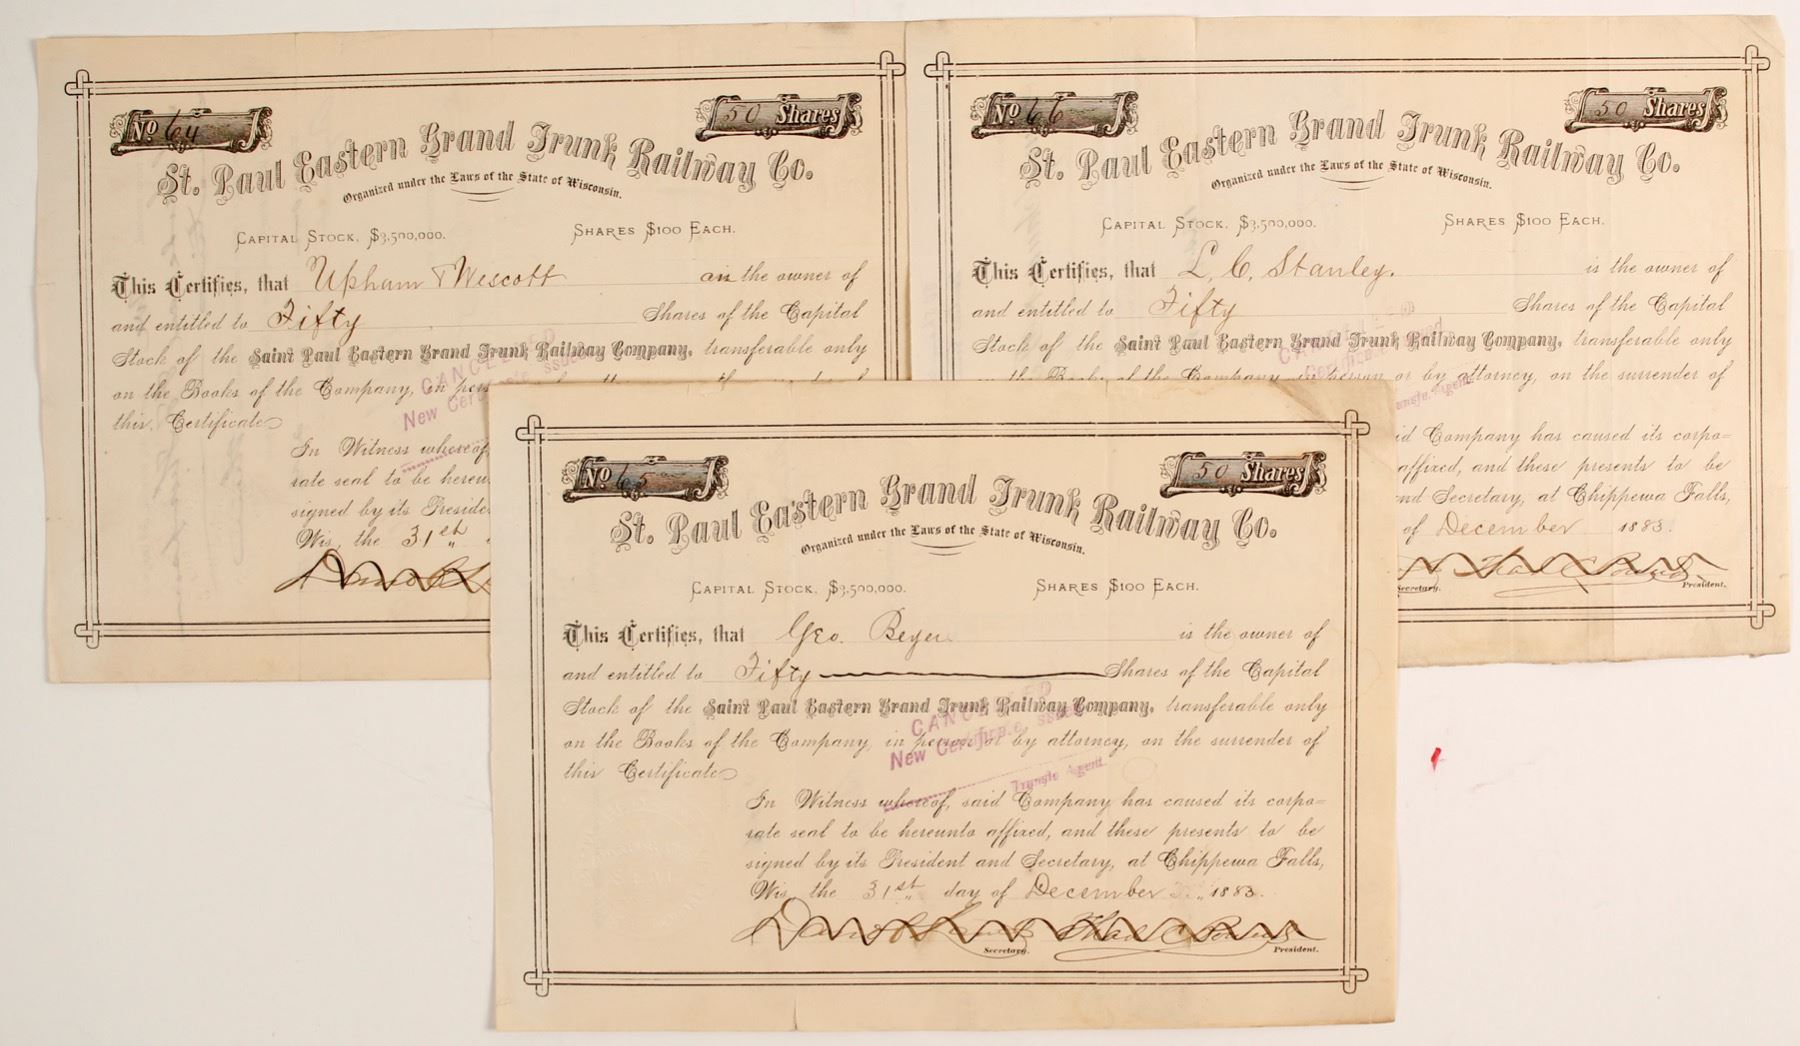 No 64
50 Shares
St. Paul Eastern Grand Trunk Railway Co.
Organized under the Laws of the State of Wisconsin.
Capital Stock, $3,500,000. Shares $100 Each.
This Certifies, that Upham & Wescott the owner of
and entitled to Fifty Shares of the Capital
Stock of the Saint Paul Eastern Grand Trunk Railway Company, transferable only
on the Books of the Company, in
this Certificate
In Witness whereof
rate seal to be
signed by its
Wis, the 31st
CANCELED
New
No 66
50 Shares
St. Paul Eastern Grand Trunk Railway Co.
Organized under the Laws of the State of Wisconsin.
Capital Stock, $3,500,000. Shares $100 Each.
This Certifies, that L. C. Stanley. is the owner of
and entitled to Fifty Shares of the Capital
Stock of the Saint Paul Eastern Grand Trunk Railway Company, transferable only
on the Books of the Company, in person or by attorney, on the surrender of
Company has caused its corpo=
affixed, and these presents to be
and Secretary, at Chippewa Falls,
of December 1883.
Secretary. President.
No 65
50 Shares
St. Paul Eastern Grand Trunk Railway Co.
Organized under the Laws of the State of Wisconsin.
Capital Stock, $3,500,000. Shares $100 Each.
This Certifies, that Geo. Beyer is the owner of
and entitled to Fifty Shares of the Capital
Stock of the Saint Paul Eastern Grand Trunk Railway Company, transferable only
on the Books of the Company, in person or by attorney, on the surrender of
this Certificate
CANCELED
New Certificate issued
Transfer Agent.
In Witness whereof, said Company has caused its corpo=
rate seal to be hereunto affixed, and these presents to be
signed by its President and Secretary, at Chippewa Falls,
Wis, the 31st day of December 1883.
Secretary. President.